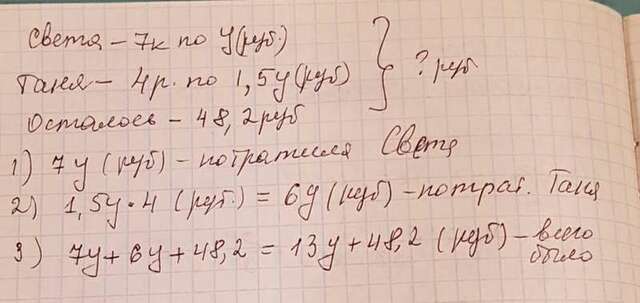 Света – 7к по y (руб)
Таня – 4р. по 1,5y (руб) } ? руб
Осталось – 48,2 руб
1) 7y (руб) – потратила Света
2) 1,5y • 4 (руб.) = 6y (руб) – потрат. Таня
3) 7y + 6y + 48,2 = 13y + 48,2 (руб) – всего
было